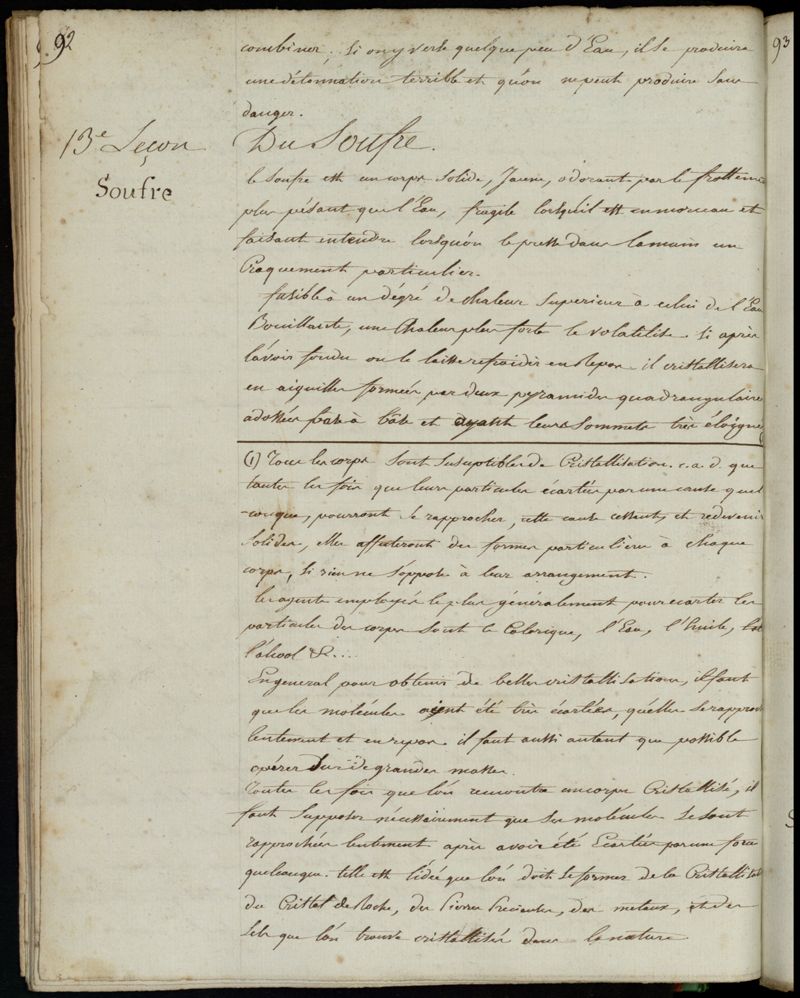 92
93
combiner; Si on y verse quelque peu d'Eau, il se produira
une détonnation terrible et qu'on ne peut produire sans
danger.
13e Leçon
Soufre
Du Soufre.
le Soufre est un corps Solide, Jaune, odorant par le frottement
plus pésant que l'Eau, fragile lorsqu'il est en morceau et
faisant entendre lorsqu'on le presse dans la main un
Craquement particulier.
fusible à un dégré de chaleur Superieur à celui de l'Eau
Bouillante, une Chaleur plus forte le volatilise. Si après
l'avoir fondu on le laisse refroidir en Repos il cristallisera
en aiguilles formées par deux pyramides quadrangulaires
adossées base à base et ayant leurs Sommets très éloignés
(1) Tous les corps Sont Susceptibles de Cristallisation. c. a. d. que
toutes les fois que leurs particules écartées par une cause quel
-conque, pourront se rapprocher, cette cause cessant, et redevenir
Solides, elles affecteront des formes particulières à chaque
corps, Si rien ne S'oppose à leur arrangement.
les agents employés le plus généralement pour écarter les
particules des corps Sont le Calorique, l'Eau, l'huile,
l'alcool &...
En general pour obtenir de belles cristallisations, il faut
que les molécules aient été très écartées, qu'elles se rapprochent
lentement et en repos. il faut aussi autant que possible
opérer Sur de grandes masses.
Toutes les fois que l'on rencontre un corps Cristallisé, il
faut Supposer nécéssairement que Ses molécules Se Sont
rapprochées lentement après avoir été Ecartées par une force
quelconque. telle est l'idée que l'on doit Se former de la Cristallisation
du Cristal de Roche, des Pierres Precieuses, des metaux, et des
Sels que l'on trouve cristallisés dans la nature